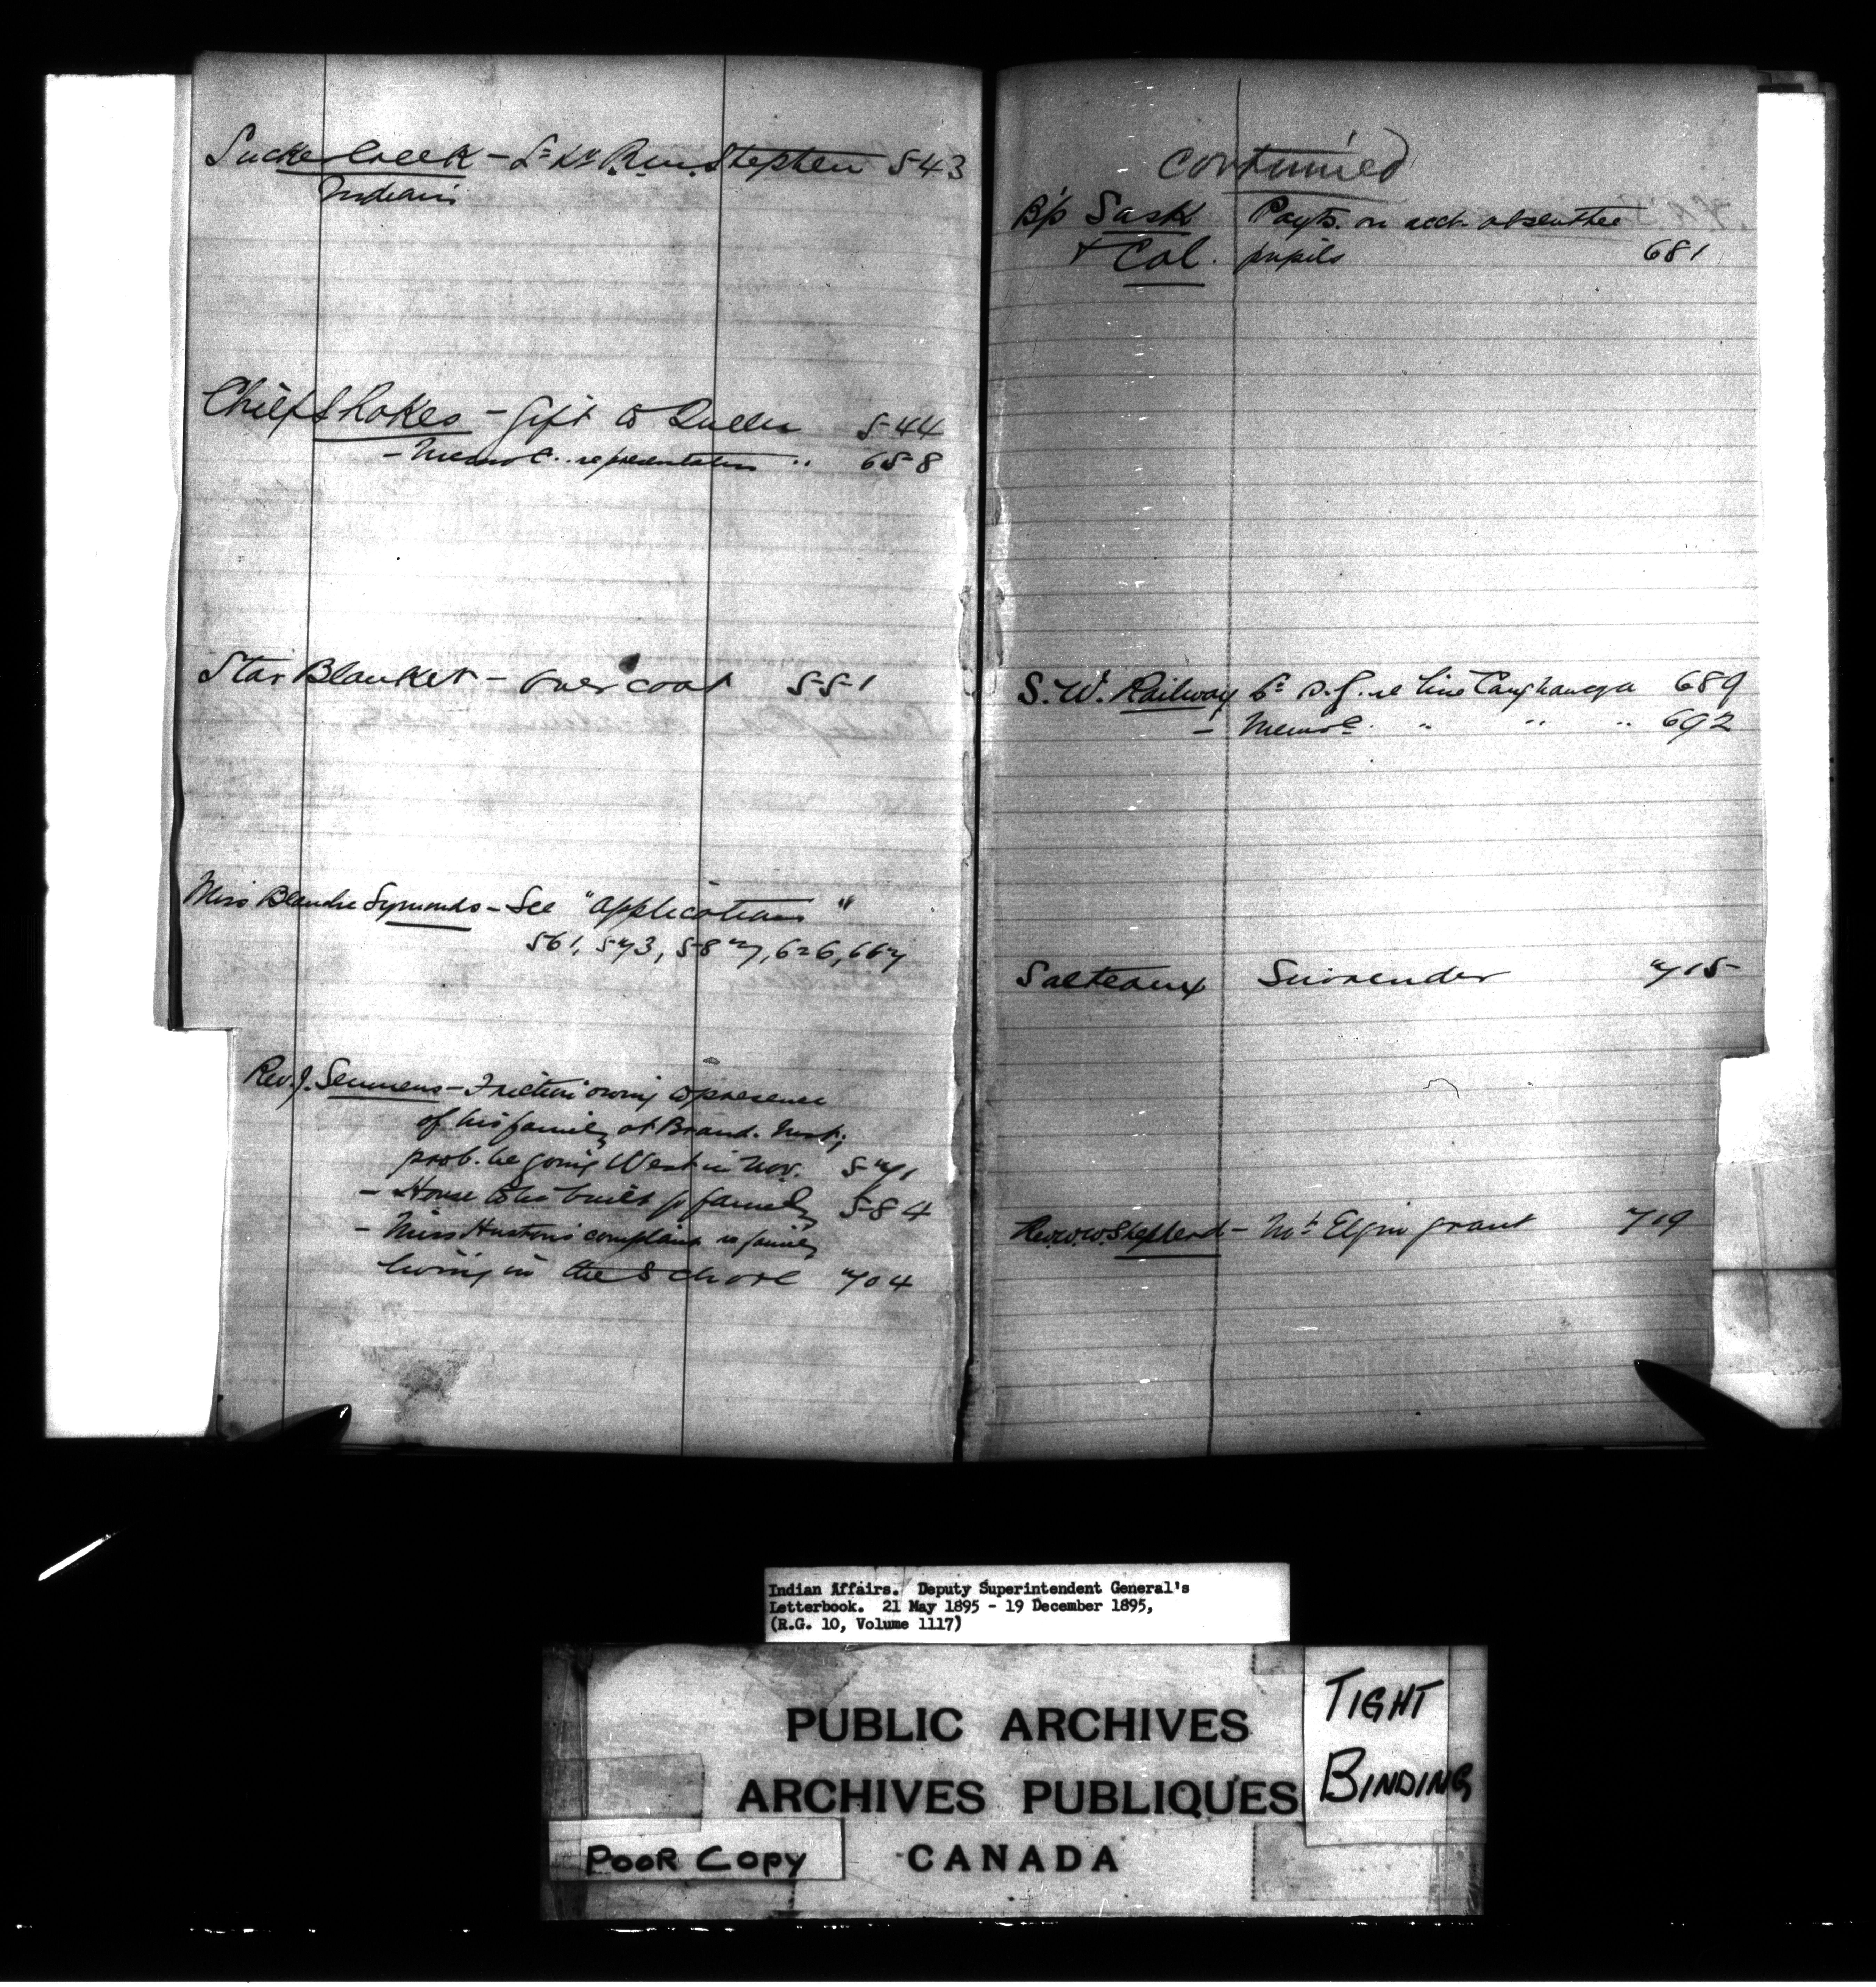 Sucker Creek – Stephen 543
Indians
Chief Shakes – Gift to Queen 544
– Memo C. representation " 658
Star Blanket – Overcoat 551
Miss Blanche Symonds – See "Applications"
561, 573, 587, 626, 667
Rev. J. Semmens – Friction owing to presence
of his family at Brand. Inst;
prob. be going West in Nov. 571
– House to be built for family 584
– Miss Huston's complaint re family
living in the School 704
continued
B'p Sask Payts. on acct. absentee
& Cal. pupils 681
S.W. Railway re line Caughnawaga 689
– Memo C. " " " 692
Salteaux Surrender 715
Rev. W.W. Shepherd – Mt Elgin grant 719
Indian Affairs. Deputy Superintendent General's
Letterbook. 21 May 1895 - 19 December 1895,
(R.G. 10, Volume 1117)
PUBLIC ARCHIVES
ARCHIVES PUBLIQUES
CANADA
TIGHT
BINDING
POOR COPY